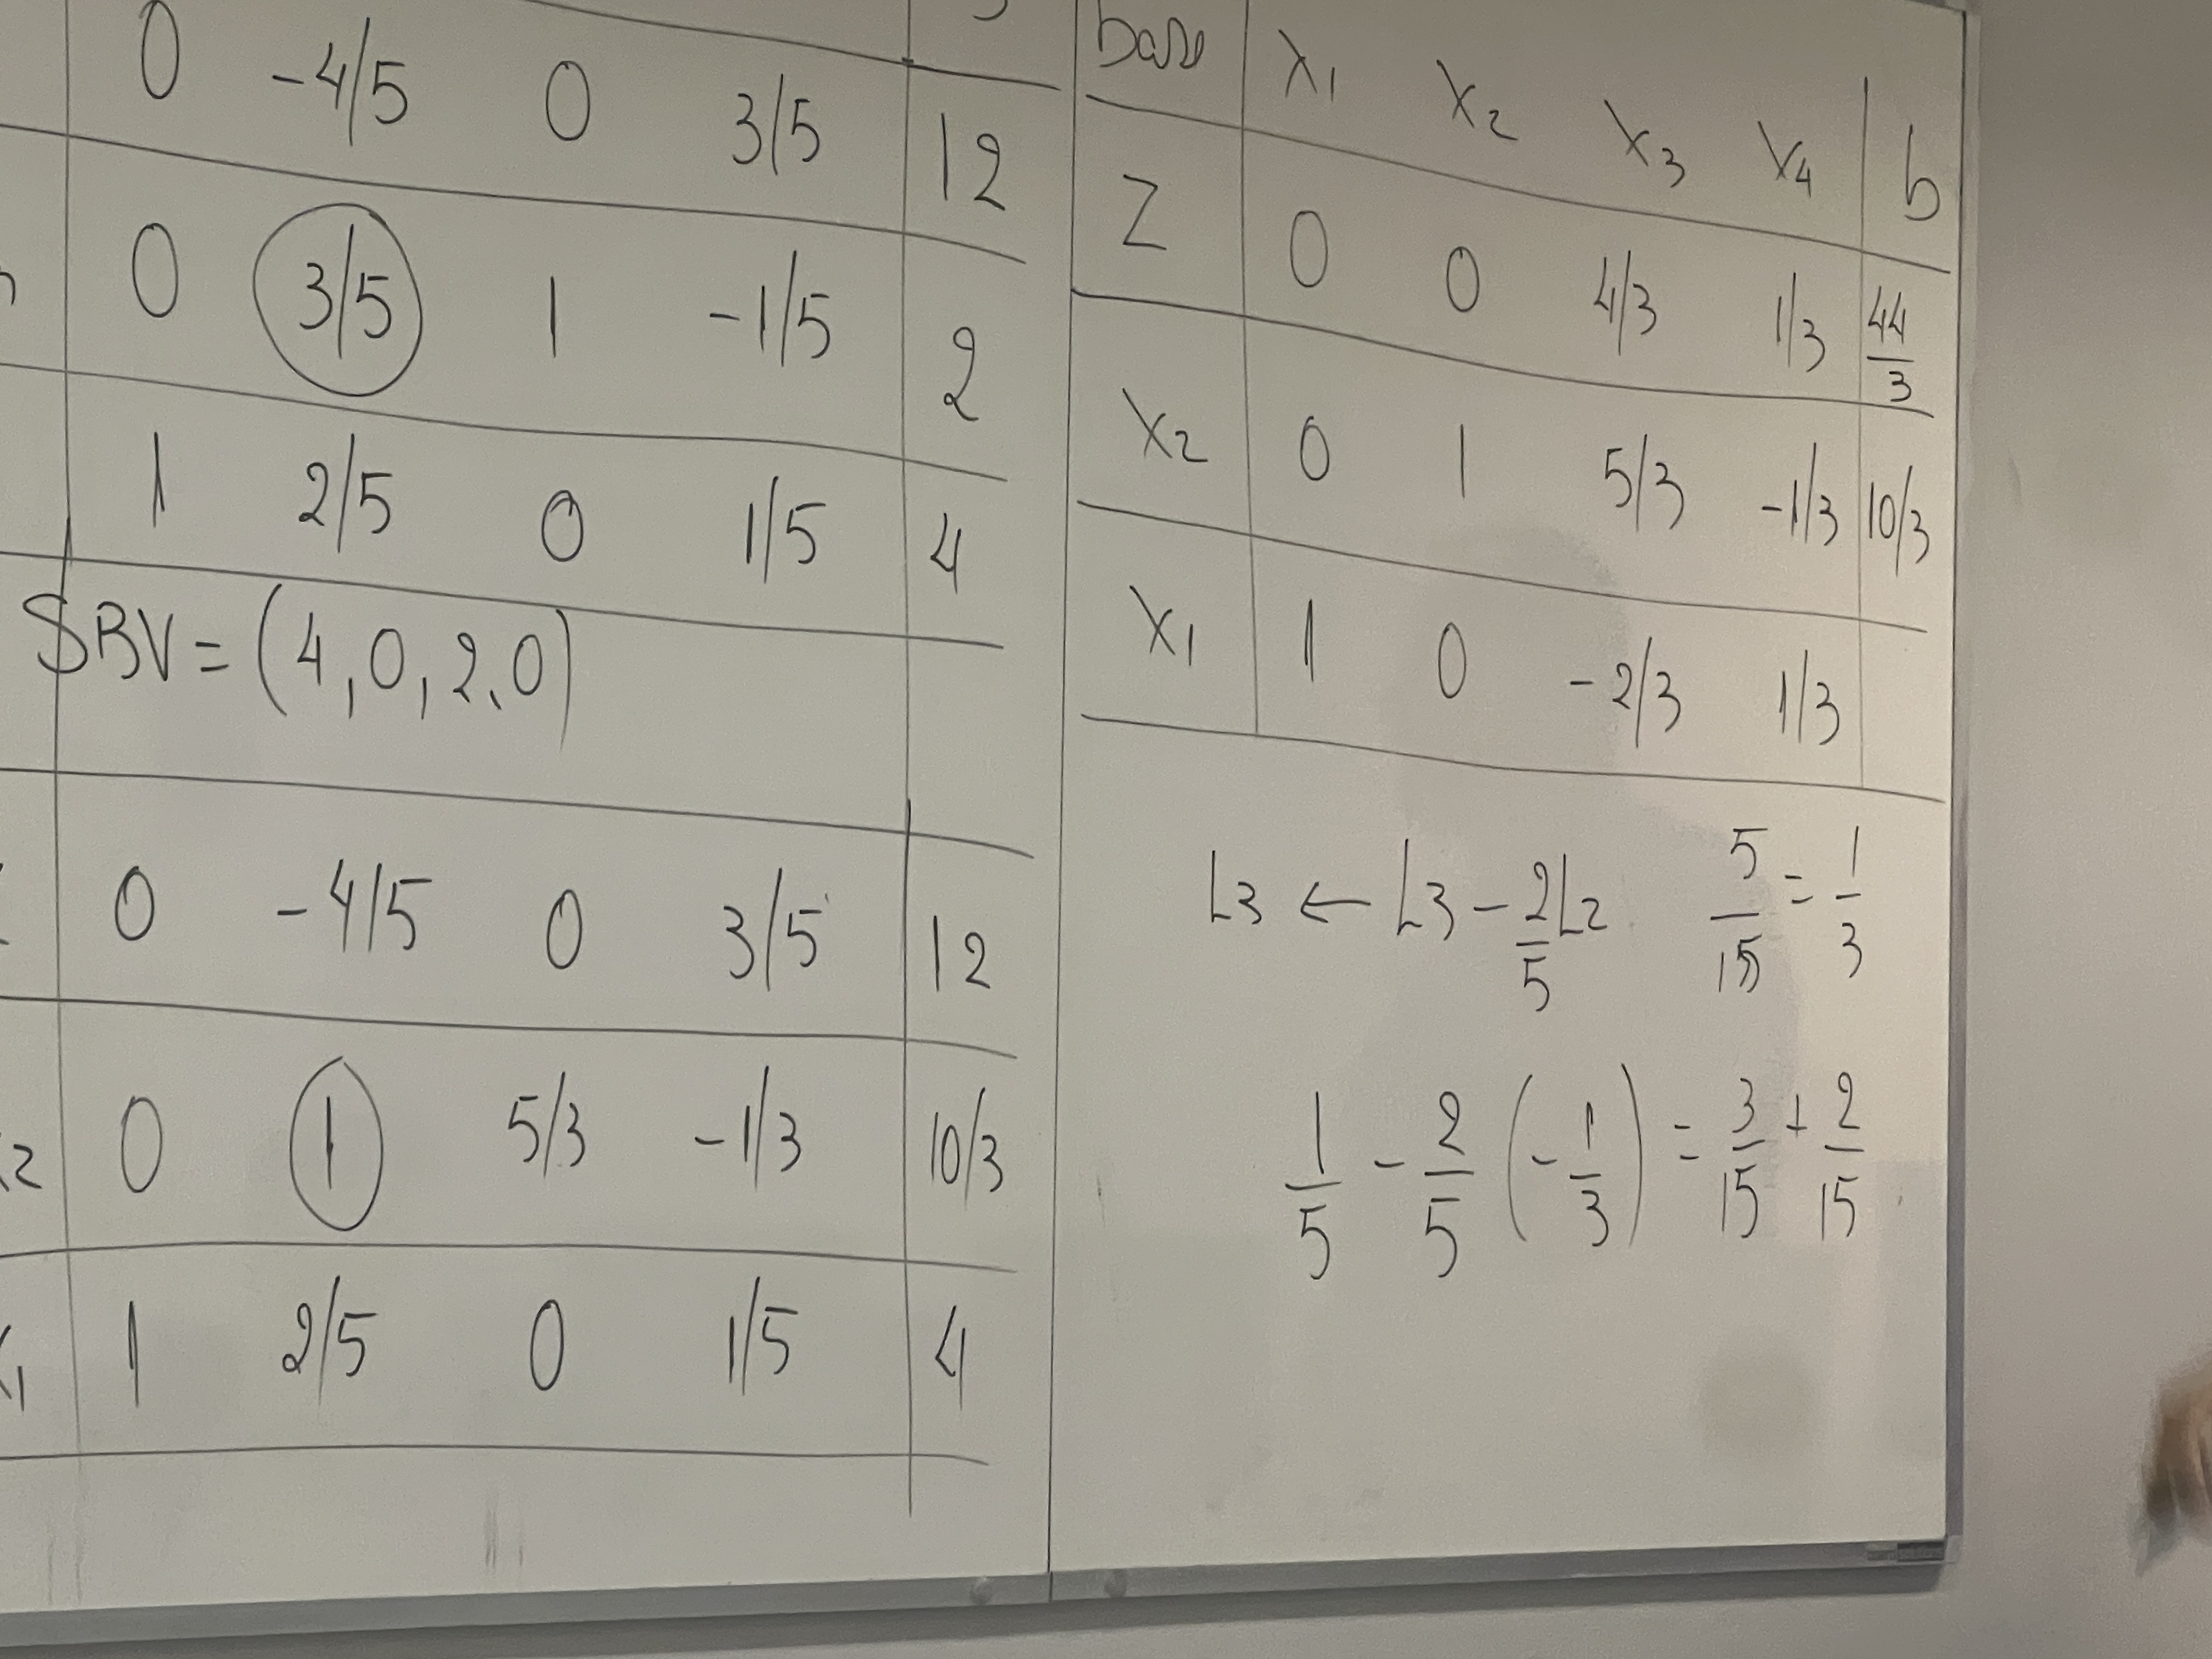 0 -4/5 0 3/5 12
0 3/5 1 -1/5 2
1 2/5 0 1/5 4
SBV = (4,0,2,0)
0 -4/5 0 3/5 12
2 0 1 5/3 -1/3 10/3
1 1 2/5 0 1/5 4
base X1 X2 X3 X4 b
Z 0 0 4/3 1/3 44/3
X2 0 1 5/3 -1/3 10/3
X1 1 0 -2/3 1/3
L3 ← L3 - 2/5 L2 5/15 = 1/3
1/5 - 2/5 (-1/3) = 3/15 + 2/15